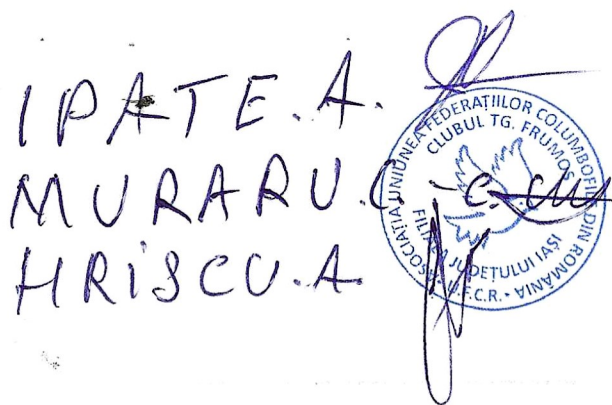 IPATE.A.
MURARU.C.
HRISCU.A.
ASOCIAȚIA UNIUNEA FEDERAȚIILOR COLUMBOFILE DIN ROMÂNIA
CLUBUL TG. FRUMOS
FILIALA JUDEȚULUI IAȘI
U.F.C.R.